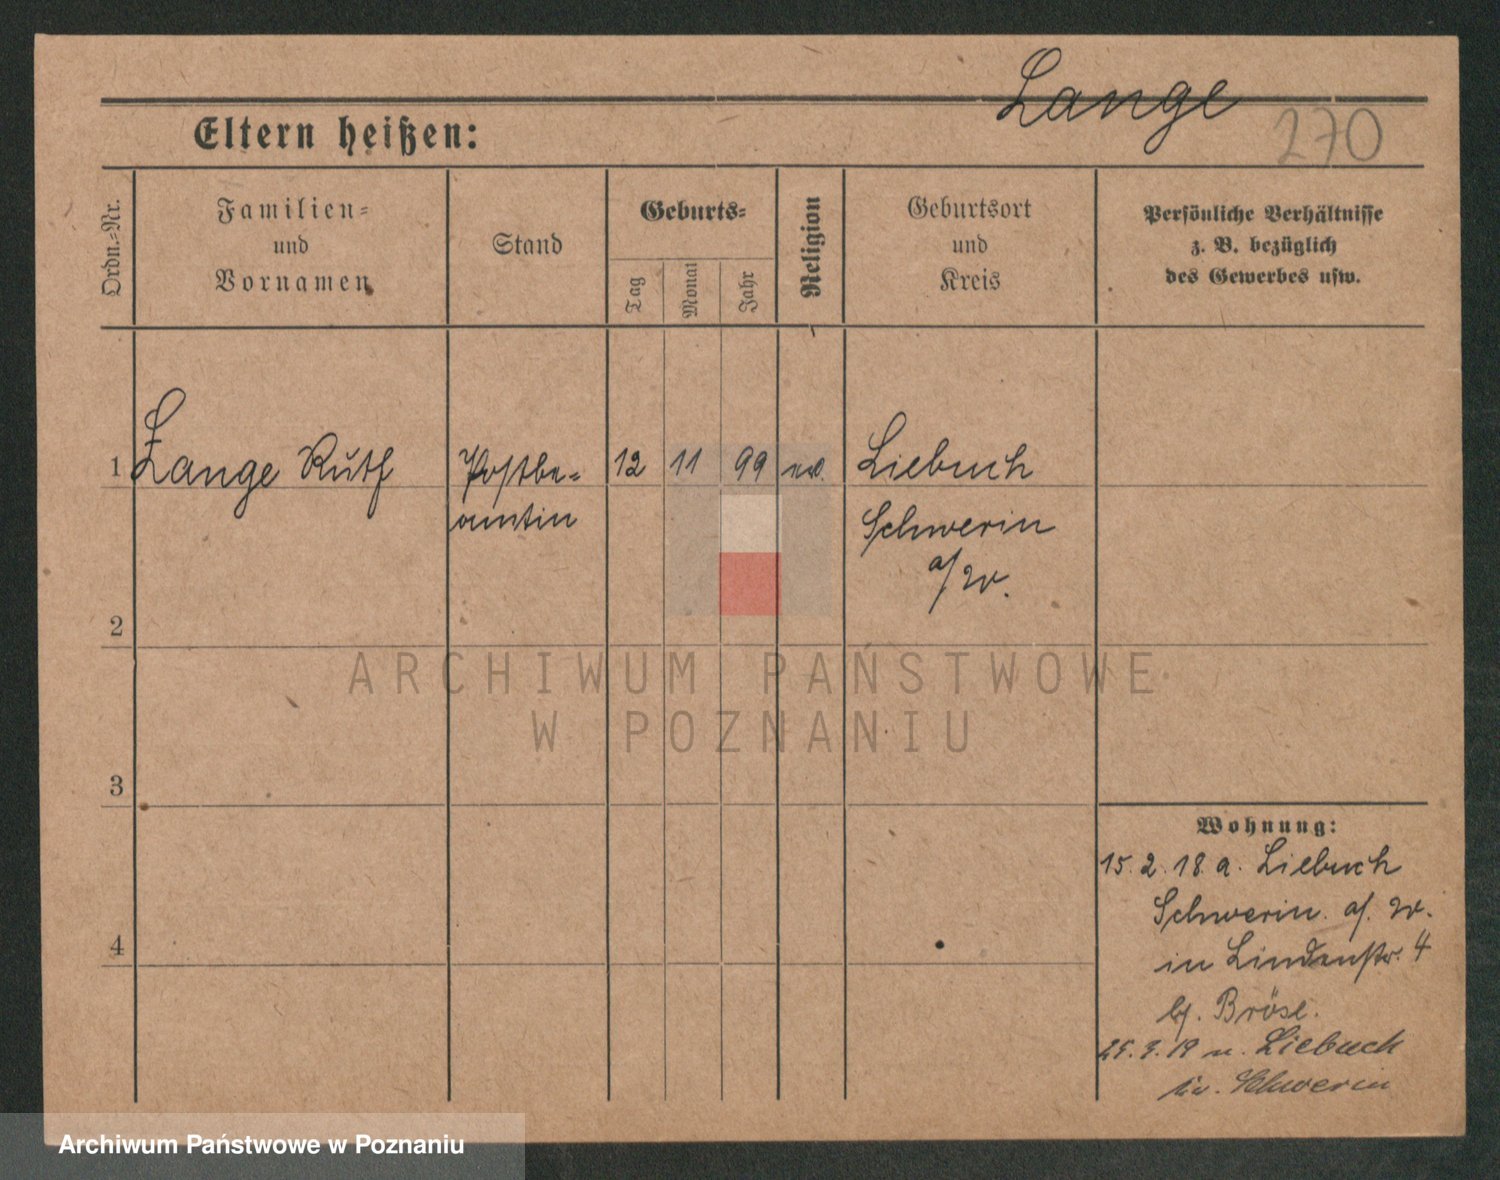 Lange
270
Eltern heißen:
Ordn.-Nr.
Familien-
und
Vornamen
Stand
Geburts-
Tag
Monat
Jahr
Religion
Geburtsort
und
Kreis
Persönliche Verhältnisse
z. B. bezüglich
des Gewerbes usw.
1 Lange Ruth Postbe- 12 11 99 ev. Liebuch
amtin Schwerin
a/W.
2
3
4
Wohnung:
15. 2. 18. a. Liebuch
Schwerin. a/. W.
in Lindenstr. 4
bj. Bröse.
25. 3. 19 n. Liebuch
Kr. Schwerin
ARCHIWUM PAŃSTWOWE
W POZNANIU
Archiwum Państwowe w Poznaniu